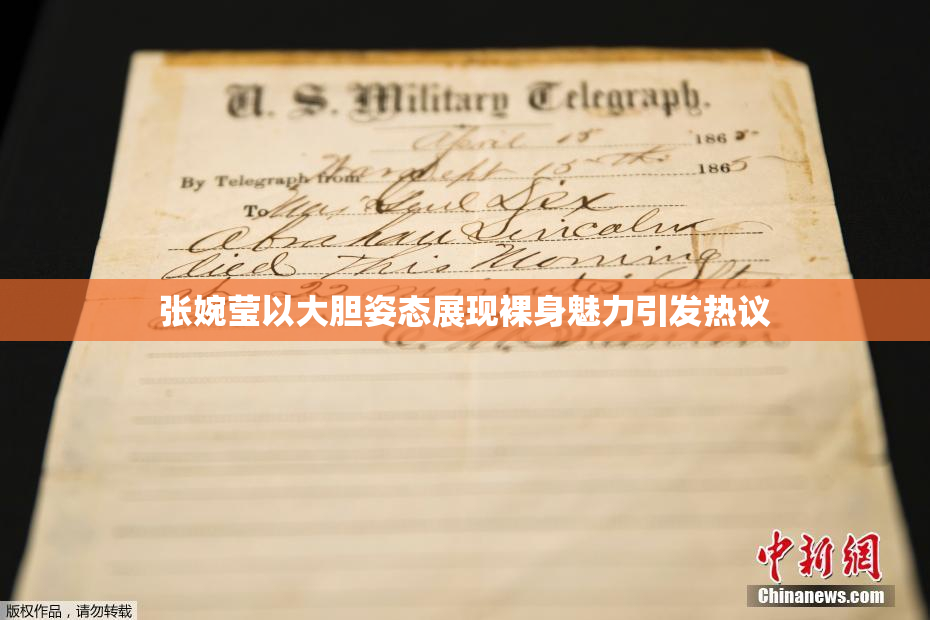 U. S. Military Telegraph.
April 15 1865
By Telegraph from War Dept 15th 1865
To Maj Genl Dix
Abraham Lincoln
died This Morning
at 22 minutes after
张婉莹以大胆姿态展现裸身魅力引发热议
E. M. Stanton
中新网
版权作品，请勿转载
Chinanews.com